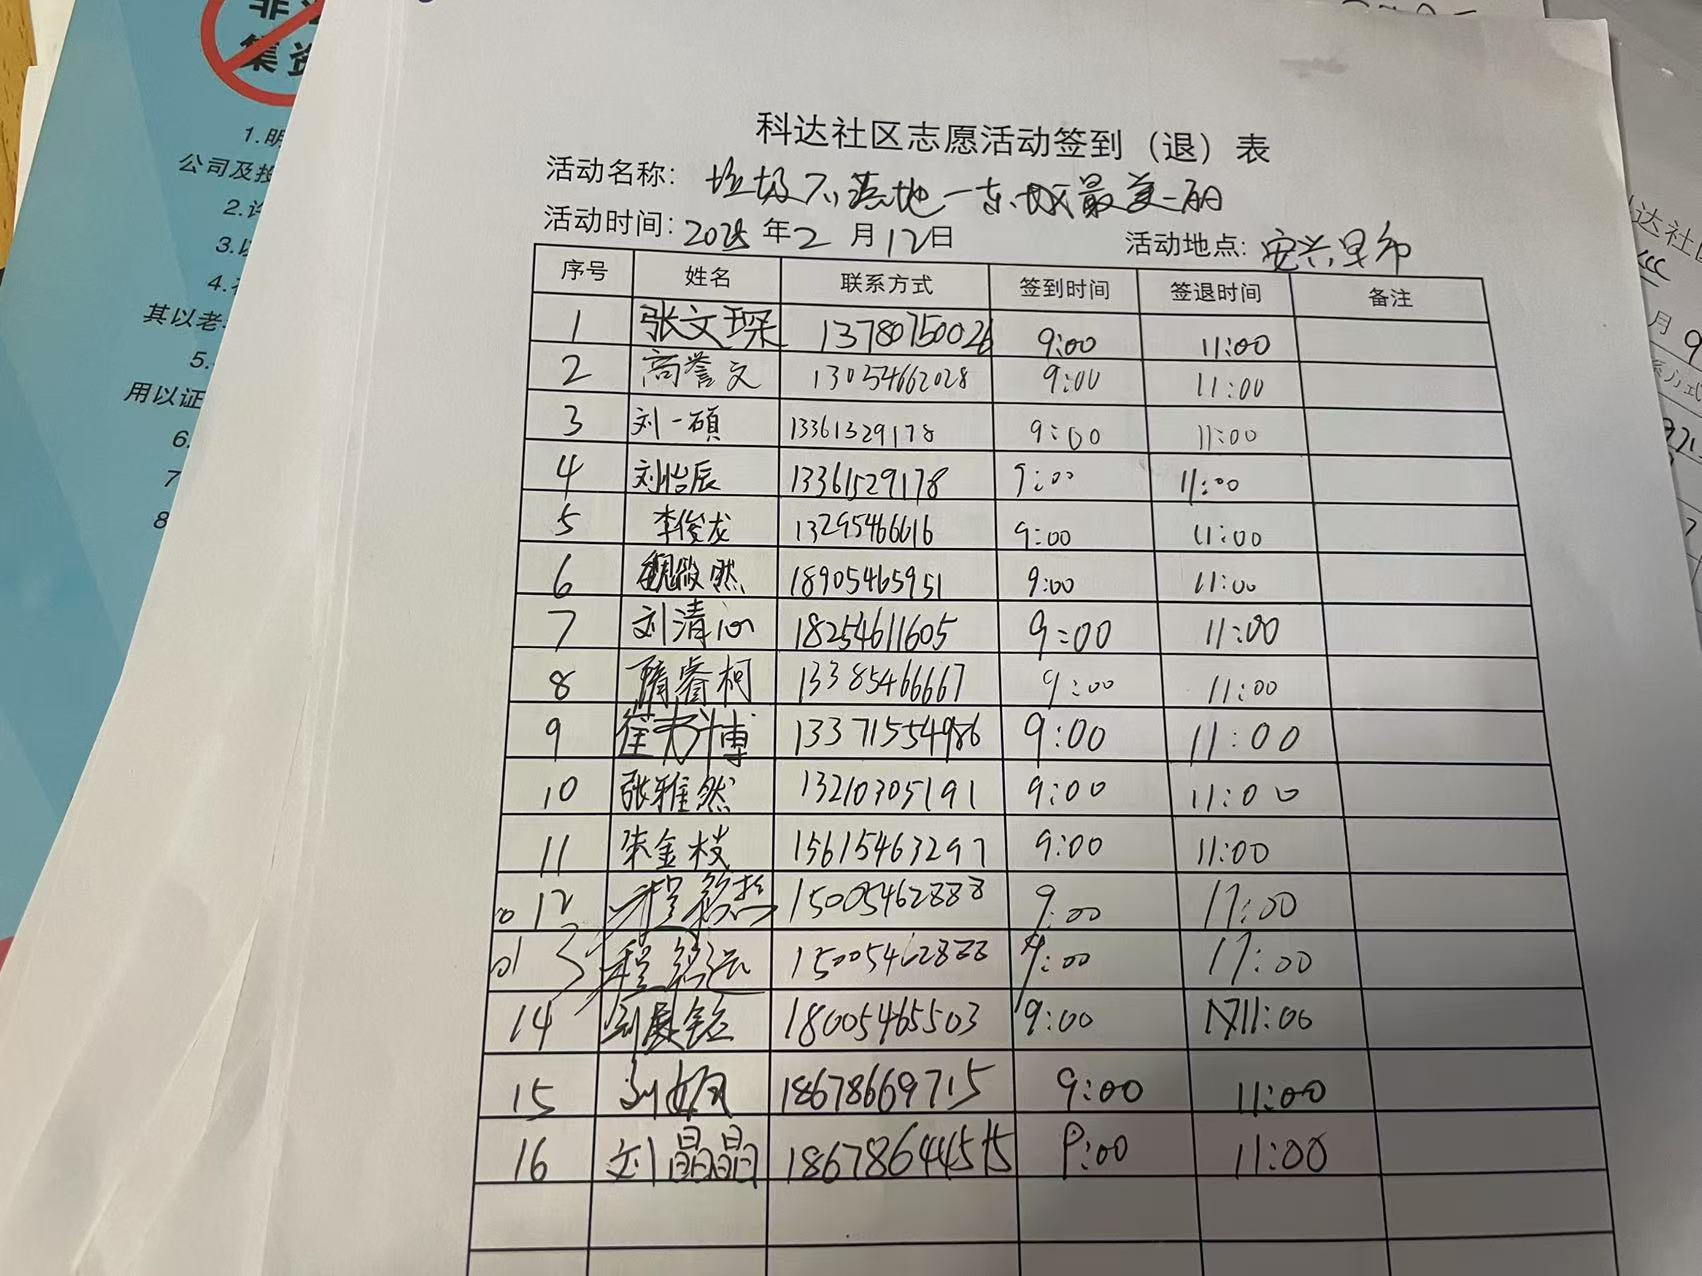 非
集资
1.明
公司及投
2.许
3.以
4.
其以老
5.
用以证
6.
7
8
科达社区志愿活动签到（退）表
活动名称：垃圾不落地一东城最美丽
活动时间：2025年2月12日 活动地点：安兴早市
序号 姓名 联系方式 签到时间 签退时间 备注
1 张文琛 13780750026 9:00 11:00
2 高誉文 13054662028 9:00 11:00
3 刘一硕 13361529178 9:00 11:00
4 刘怡辰 13361529178 9:00 11:00
5 李俊龙 13295466616 9:00 11:00
6 魏筱然 18905465951 9:00 11:00
7 刘清 18254611605 9:00 11:00
8 隋睿柯 13385466667 9:00 11:00
9 崔博 13371554986 9:00 11:00
10 张雅然 13210305191 9:00 11:00
11 朱金枝 15615463297 9:00 11:00
12 程 15005462888 9:00 11:00
13 程 15005462888 9:00 11:00
14 刘 18005465503 9:00 11:00
15 刘 18678669715 9:00 11:00
16 刘晶晶 18678644515 9:00 11:00
达社区
月9
系方式